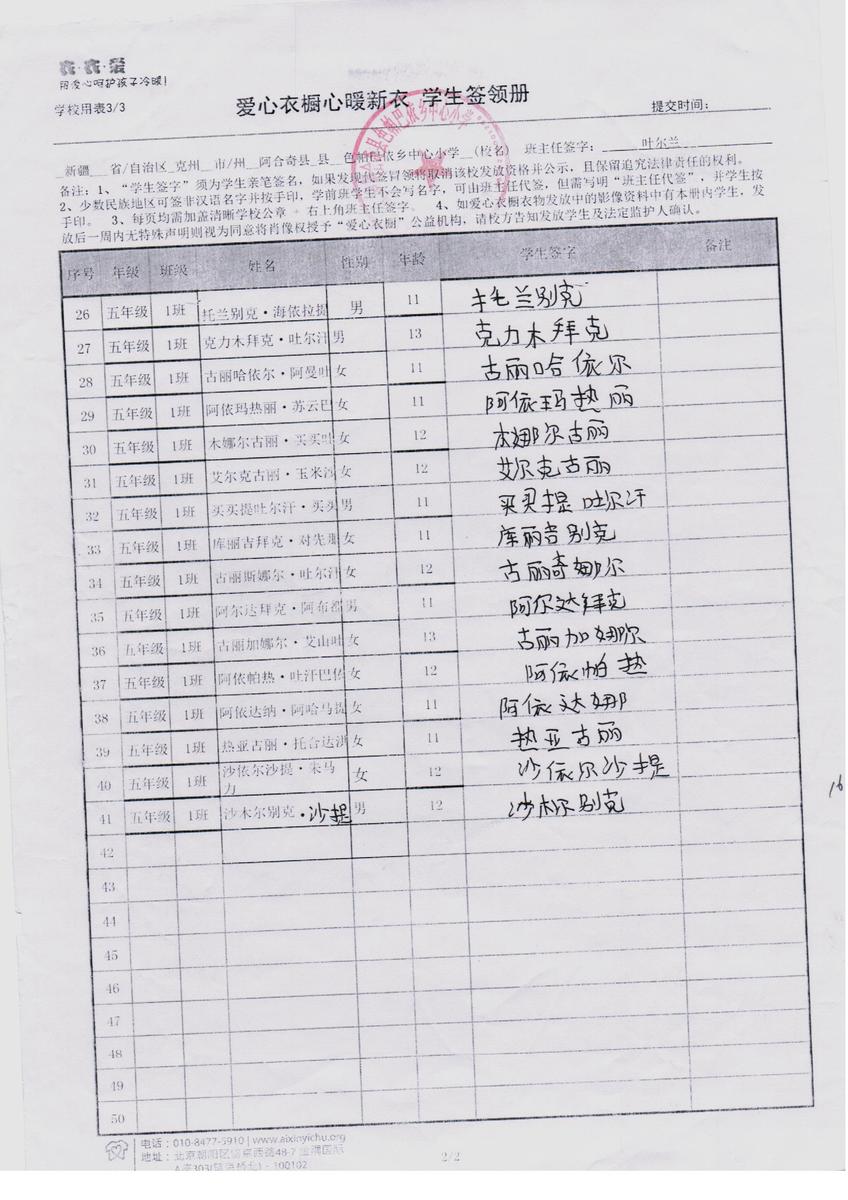 衣·衣·爱
用爱心呵护孩子冷暖!
学校用表3/3
爱心衣橱心暖新衣 学生签领册
提交时间:
新疆 省/自治区 克州 市/州 阿合奇县 县 色帕巴依乡中心小学 (校名) 班主任签字: 叶尔兰
备注:1、“学生签字”须为学生亲笔签名,如果发现代签冒领将取消该校发放资格并公示,且保留追究法律责任的权利。
2、少数民族地区可签非汉语名字并按手印,学前班学生不会写名字,可由班主任代签,但需写明“班主任代签”,并学生按
手印。 3、每页均需加盖清晰学校公章 + 右上角班主任签字。 4、如爱心衣橱衣物发放中的影像资料中有本册内学生,发
放后一周内无特殊声明则视为同意将肖像权授予“爱心衣橱”公益机构,请校方告知发放学生及法定监护人确认。
序号 年级 班级 姓名 性别 年龄 学生签字 备注
26 五年级 1班 托兰别克·海依拉提 男 11 托兰别克
27 五年级 1班 克力木拜克·吐尔汗 男 13 克力木拜克
28 五年级 1班 古丽哈依尔·阿曼吐 女 11 古丽哈依尔
29 五年级 1班 阿依玛热丽·苏云巴 女 11 阿依玛热丽
30 五年级 1班 木娜尔古丽·买买吐 女 12 木娜尔古丽
31 五年级 1班 艾尔克古丽·玉米 女 12 艾尔克古丽
32 五年级 1班 买买提吐尔汗·买买 男 11 买买提吐尔汗
33 五年级 1班 库丽吉拜克·对先 女 11 库丽吉别克
34 五年级 1班 古丽斯娜尔·吐尔汗 女 12 古丽奇娜尔
35 五年级 1班 阿尔达拜克·阿布 男 11 阿尔达拜克
36 五年级 1班 古丽加娜尔·艾山吐 女 13 古丽加娜尔
37 五年级 1班 阿依帕热·吐汗巴依 女 12 阿依帕热
38 五年级 1班 阿依达纳·阿哈马提 女 11 阿依达娜
39 五年级 1班 热亚古丽·托合达洪 女 11 热亚古丽
40 五年级 1班 沙依尔沙提·朱马力 女 12 沙依尔沙提
41 五年级 1班 沙木尔别克·沙提 男 12 沙木尔别克
16
42
43
44
45
46
47
48
49
50
电话:010-8477-5910 | www.aixinyichu.org
地址:北京朝阳区 48-7 国际
A座303 - 100102
2/2